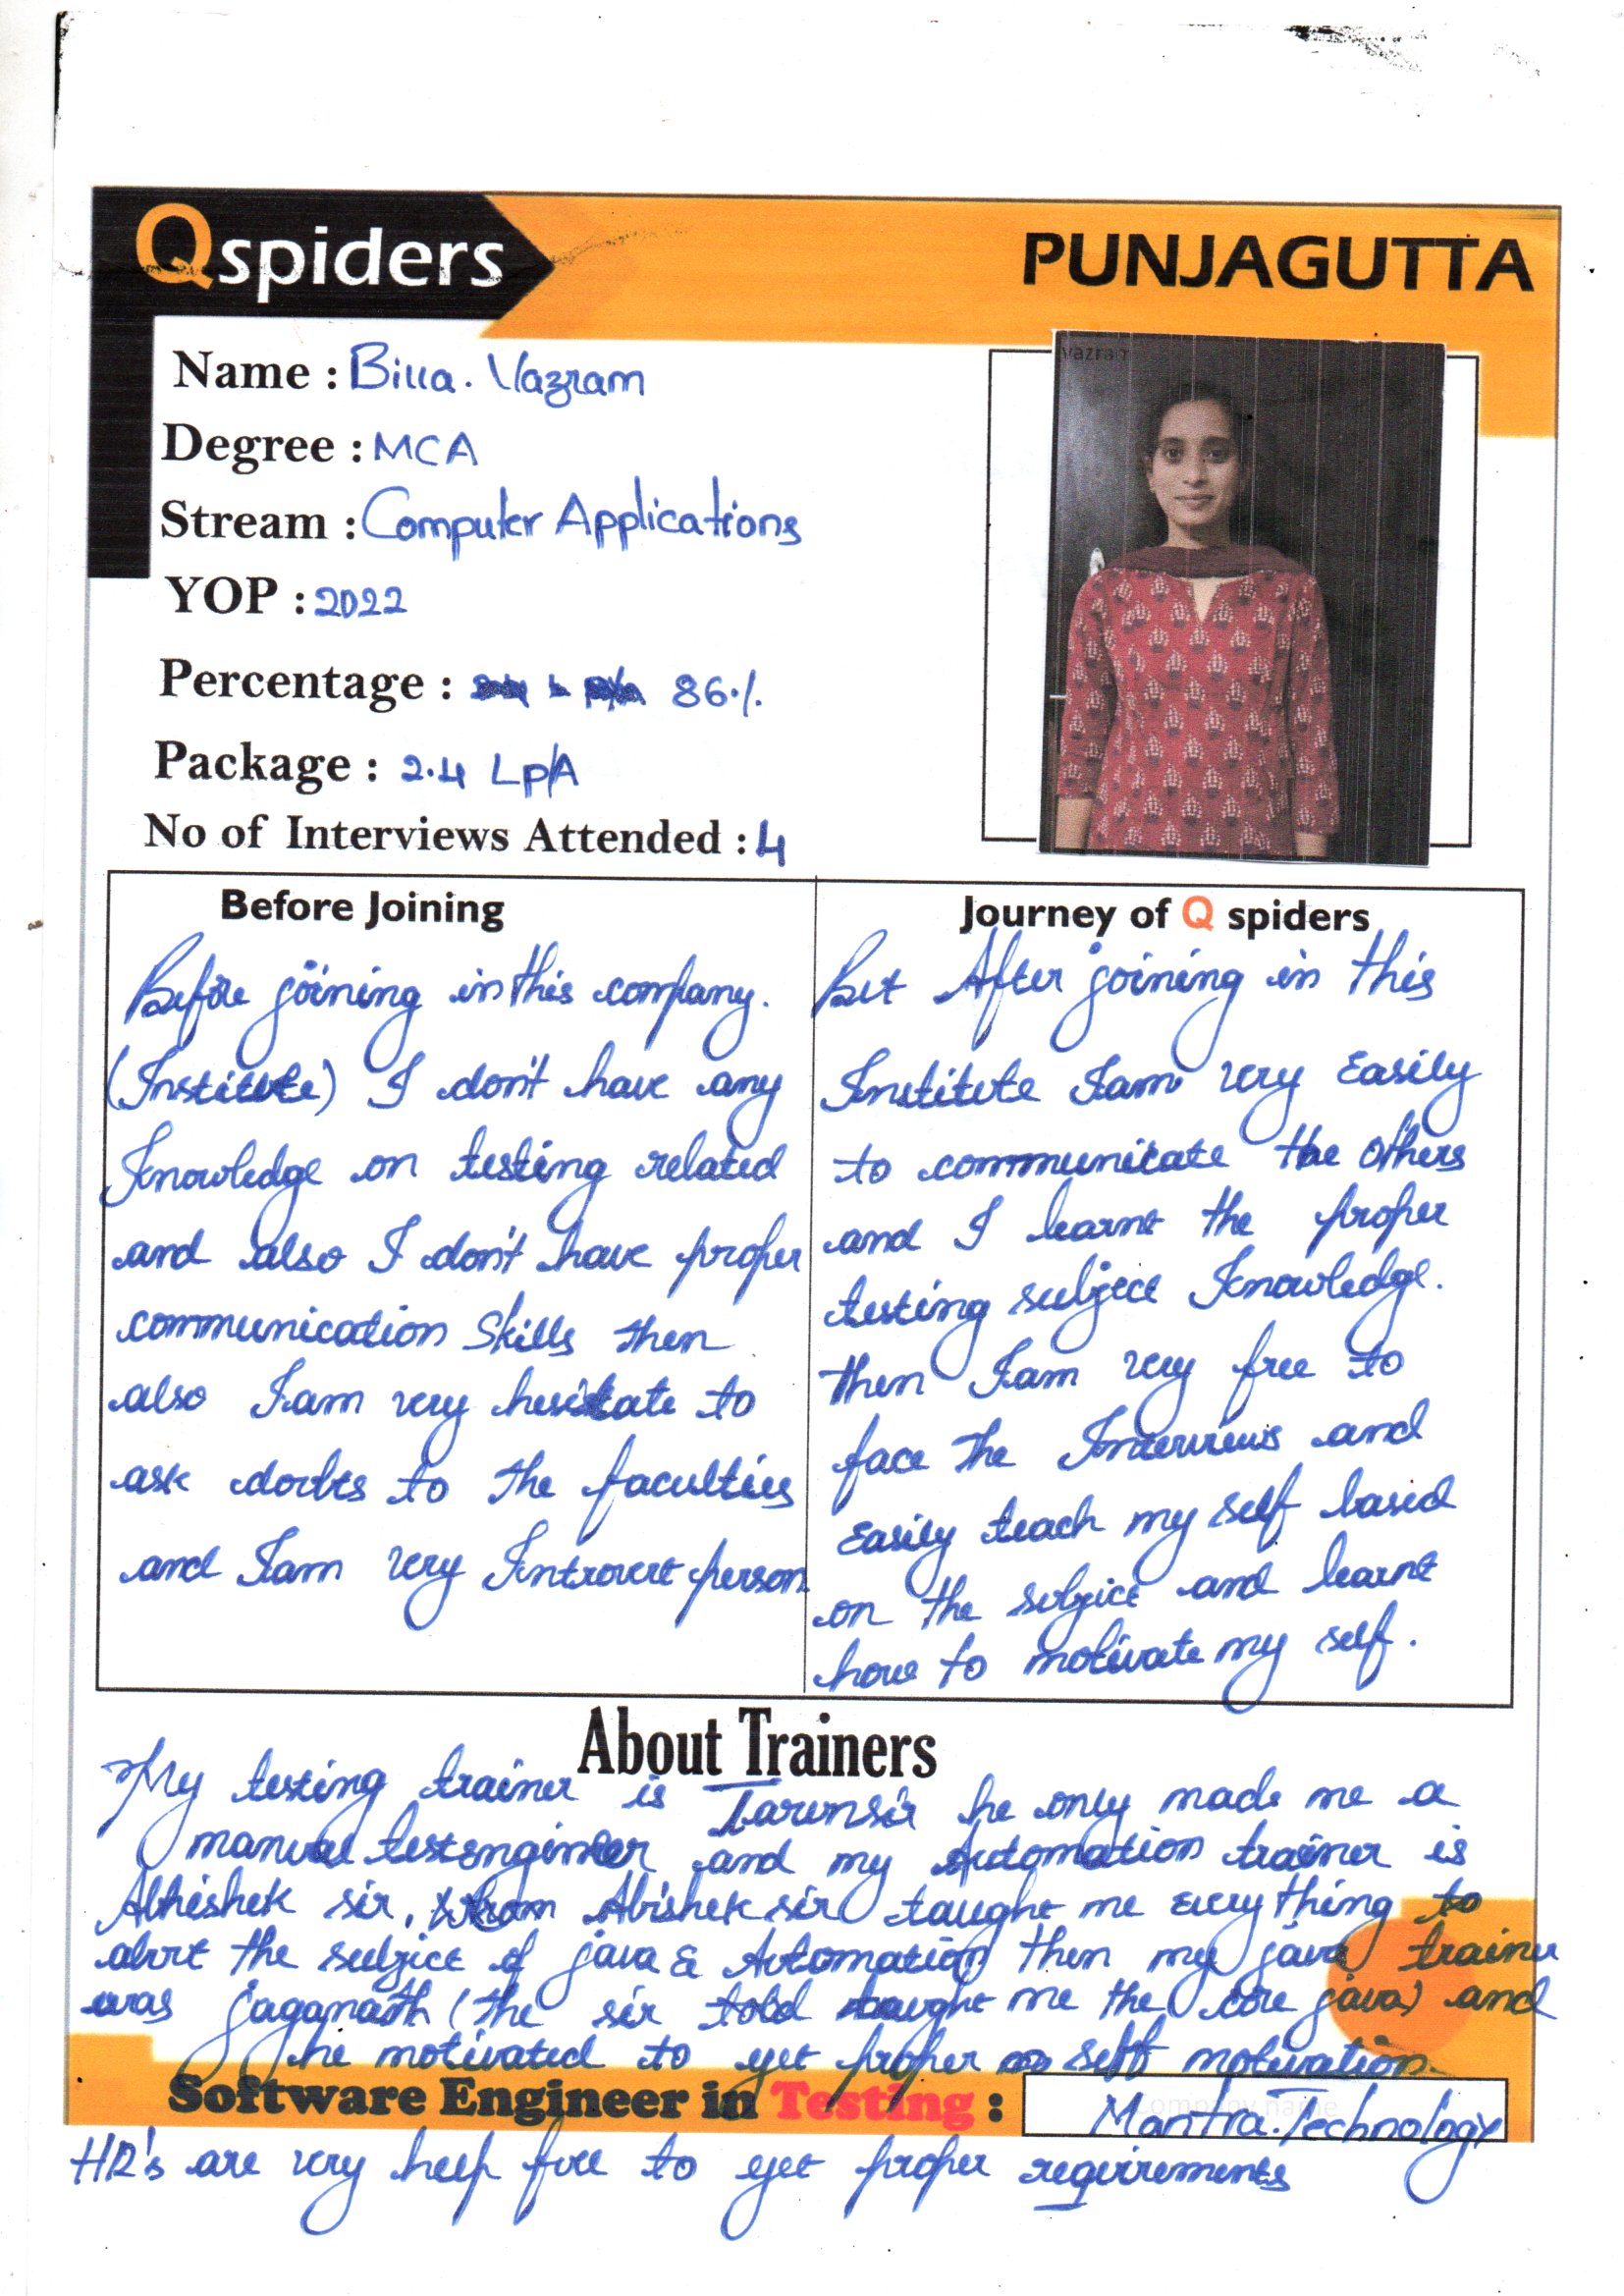 Qspiders
PUNJAGUTTA
Name : Billa. Vazram
Vazram
Degree : MCA
Stream : Computer Applications
YOP : 2022
Percentage : 86%
Package : 2.4 LP/A
No of Interviews Attended : 4
Before Joining
Before joining in this company.
(Institute) I don't have any
Knowledge on testing related
and also I don't have proper
communication Skills then
also Iam very hesitate to
ask doubts to the faculties
and Iam very Introvert person
Journey of Q spiders
But After joining in this
Institute Iam very Easily
to communicate the others
and I learnt the proper
testing subject Knowledge.
then Iam very free to
face the Interviews and
Easily teach my self based
on the subject and learnt
how to motivate my self.
About Trainers
My testing trainer is Tarunsir he only made me a
manual testengineer and my Automation trainer is
Abhishek sir, Abishek sir taught me Everything to
about the subject of java & Automation then my java trainer
was jaganath (the sir told taught me the core java) and
he motivated to get proper self motivation.
Software Engineer in Testing : Mantra.Technology
Company name
HR's are very help full to get proper requirements